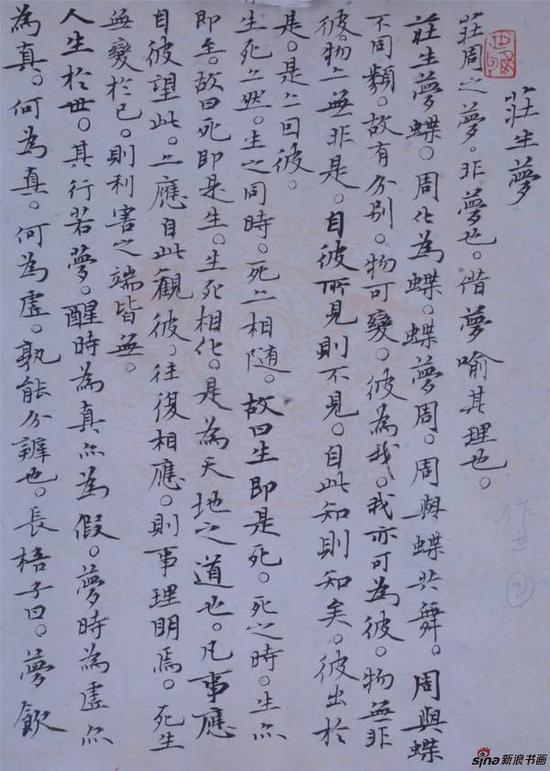 莊生夢
莊周之夢。非夢也。借夢喻其理也。
莊生夢蝶。周化為蝶。蝶夢周。周與蝶共舞。周與蝶
不同類。故有分別。物可變。彼為我。我亦可為彼。物無非
彼。物亦無非是。自彼所見則不見。自此知則知矣。彼出於
是。是亦因彼。
生死亦然。生之同時。死亦相随。故曰生即是死。死之時。生亦
即至。故曰死即是生。生死相化。是為天地之道也。凡事應
自彼望此。亦應自此觀彼。往復相應。則事理明焉。死生
無變於己。則利害之端皆無。
人生於世。其行若夢。醒時為真亦為假。夢時為虛亦
為真。何為真。何為虛。孰能分辨也。長梧子曰。夢飲
sina新浪书画